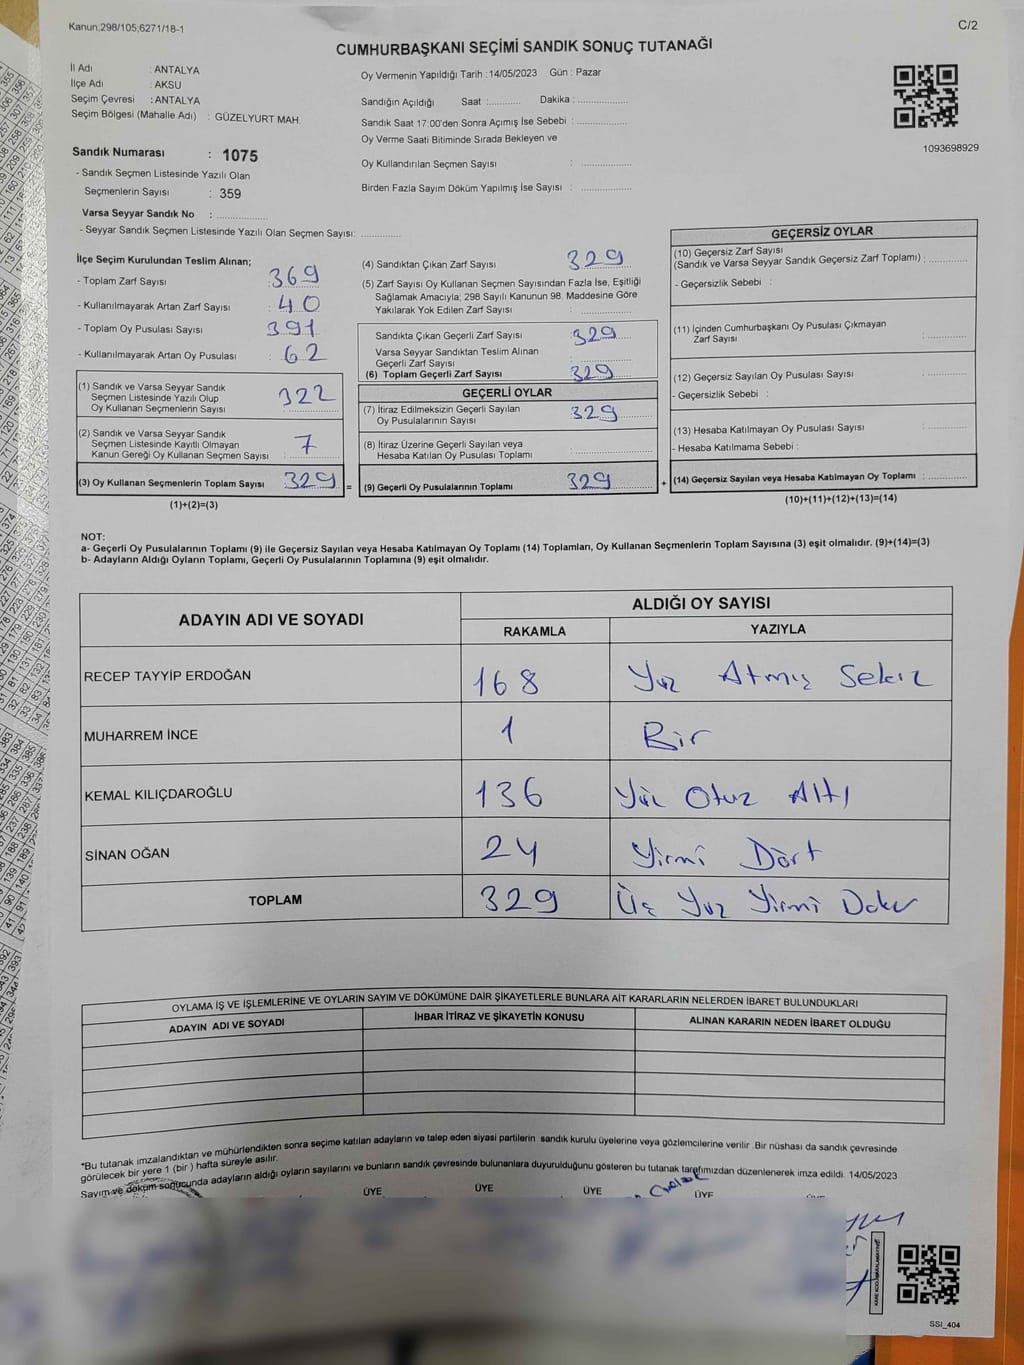 Kanun;298/105;6271/18-1
C/2
CUMHURBAŞKANI SEÇİMİ SANDIK SONUÇ TUTANAĞI
İl Adı : ANTALYA
İlçe Adı : AKSU
Seçim Çevresi : ANTALYA
Seçim Bölgesi (Mahalle Adı) : GÜZELYURT MAH.
Sandık Numarası : 1075
- Sandık Seçmen Listesinde Yazılı Olan
Seçmenlerin Sayısı : 359
Varsa Seyyar Sandık No : ..................
- Seyyar Sandık Seçmen Listesinde Yazılı Olan Seçmen Sayısı: .............
Oy Vermenin Yapıldığı Tarih : 14/05/2023 Gün : Pazar
Sandığın Açıldığı Saat :........... Dakika : .................
Sandık Saat 17:00'den Sonra Açımış İse Sebebi : .................
Oy Verme Saati Bitiminde Sırada Bekleyen ve
Oy Kullandırılan Seçmen Sayısı : .................
Birden Fazla Sayım Döküm Yapılmış İse Sayısı : .................
1093698929
İlçe Seçim Kurulundan Teslim Alınan;
- Toplam Zarf Sayısı : 369
- Kullanılmayarak Artan Zarf Sayısı : 40
- Toplam Oy Pusulası Sayısı : 391
- Kullanılmayarak Artan Oy Pusulası : 62
(1) Sandık ve Varsa Seyyar Sandık
Seçmen Listesinde Yazılı Olup
Oy Kullanan Seçmenlerin Sayısı : 322
(2) Sandık ve Varsa Seyyar Sandık
Seçmen Listesinde Kayıtlı Olmayan
Kanun Gereği Oy Kullanan Seçmen Sayısı : 7
(3) Oy Kullanan Seçmenlerin Toplam Sayısı : 329
(1)+(2)=(3)
=
(4) Sandıktan Çıkan Zarf Sayısı : 329
(5) Zarf Sayısı Oy Kullanan Seçmen Sayısından Fazla İse, Eşitliği
Sağlamak Amacıyla; 298 Sayılı Kanunun 98. Maddesine Göre
Yakılarak Yok Edilen Zarf Sayısı : .................
Sandıkta Çıkan Geçerli Zarf Sayısı : 329
Varsa Seyyar Sandıktan Teslim Alınan
Geçerli Zarf Sayısı : .................
(6) Toplam Geçerli Zarf Sayısı : 329
GEÇERLİ OYLAR
(7) İtiraz Edilmeksizin Geçerli Sayılan
Oy Pusulalarının Sayısı : 329
(8) İtiraz Üzerine Geçerli Sayılan veya
Hesaba Katılan Oy Pusulası Toplamı : .................
(9) Geçerli Oy Pusulalarının Toplamı : 329
+
GEÇERSİZ OYLAR
(10) Geçersiz Zarf Sayısı
(Sandık ve Varsa Seyyar Sandık Geçersiz Zarf Toplamı) : .............
- Geçersizlik Sebebi :
(11) İçinden Cumhurbaşkanı Oy Pusulası Çıkmayan
Zarf Sayısı : .............
(12) Geçersiz Sayılan Oy Pusulası Sayısı : .............
- Geçersizlik Sebebi :
(13) Hesaba Katılmayan Oy Pusulası Sayısı : .............
- Hesaba Katılmama Sebebi :
(14) Geçersiz Sayılan veya Hesaba Katılmayan Oy Toplamı : .............
(10)+(11)+(12)+(13)=(14)
NOT:
a- Geçerli Oy Pusulalarının Toplamı (9) ile Geçersiz Sayılan veya Hesaba Katılmayan Oy Toplamı (14) Toplamları, Oy Kullanan Seçmenlerin Toplam Sayısına (3) eşit olmalıdır. (9)+(14)=(3)
b- Adayların Aldığı Oyların Toplamı, Geçerli Oy Pusulalarının Toplamına (9) eşit olmalıdır.
ADAYIN ADI VE SOYADI
ALDIĞI OY SAYISI
RAKAMLA YAZIYLA
RECEP TAYYİP ERDOĞAN 168 Yüz Atmış Sekiz
MUHARREM İNCE 1 Bir
KEMAL KILIÇDAROĞLU 136 Yüz Otuz Altı
SİNAN OĞAN 24 Yirmi Dört
TOPLAM 329 Üç Yüz Yirmi Dokuz
OYLAMA İŞ VE İŞLEMLERİNE VE OYLARIN SAYIM VE DÖKÜMÜNE DAİR ŞİKAYETLERLE BUNLARA AİT KARARLARIN NELERDEN İBARET BULUNDUKLARI
ADAYIN ADI VE SOYADI İHBAR İTİRAZ VE ŞİKAYETİN KONUSU ALINAN KARARIN NEDEN İBARET OLDUĞU
*Bu tutanak imzalandıktan ve mühürlendikten sonra seçime katılan adayların ve talep eden siyasi partilerin sandık kurulu üyelerine veya gözlemcilerine verilir .Bir nüshası da sandık çevresinde
görülecek bir yere 1 (bir ) hafta süreyle asılır.
Sayım ve döküm sonucunda adayların aldığı oyların sayılarını ve bunların sandık çevresinde bulunanlara duyurulduğunu gösteren bu tutanak tarafımızdan düzenlenerek imza edildi. 14/05/2023
ÜYE ÜYE ÜYE ÜYE
SSI_404